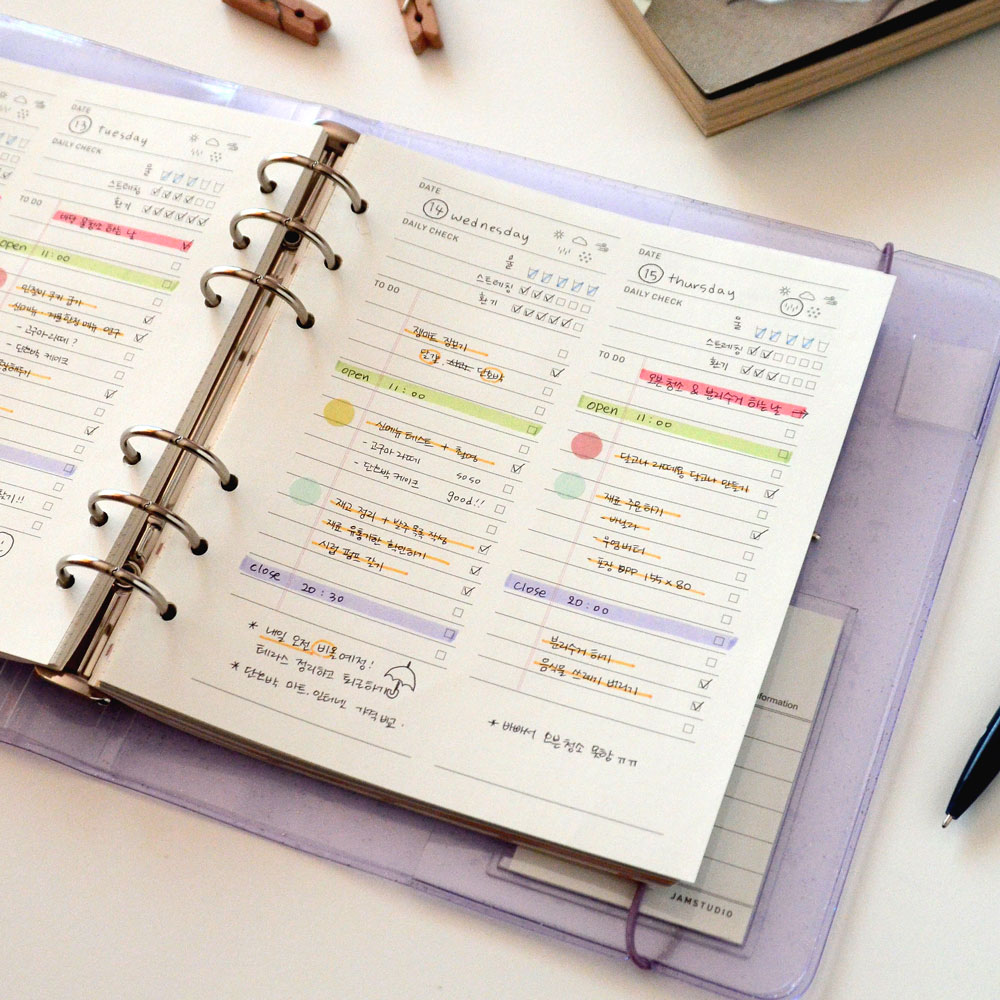 DATE
13 tuesday
DAILY CHECK
물
스트레칭
환기
TO DO
매장 물청소 하는 날
open 11:00
신메뉴 겨울한정 메뉴 연구
- 고구마 라떼?
- 단호박 케이크
DATE
14 wednesday
DAILY CHECK
물
스트레칭
환기
TO DO
잼마트 장보기
달걀, 시나몬, 단호박
open 11:00
신메뉴 테스트 + 촬영
- 고구마 라떼 soso
- 단호박 케이크 good!!
재고 정리 + 발주 목록 작성
재료 유통기한 확인하기
시럽 펌프 갈기
close 20:30
* 내일 오전 비올 예정!
테라스 정리하고 퇴근하기
* 단호박 마트, 인터넷 가격 비교.
DATE
15 thursday
DAILY CHECK
물
스트레칭
환기
TO DO
오븐 청소 & 분리수거 하는 날
open 11:00
달고나 라떼용 달고나 만들기
재료 주문하기
- 바닐라
- 우엉버터
- 포장 OPP 155 x 80
close 20:00
분리수거 하기
음식물 쓰레기 버리기
* 바빠서 오븐 청소 못함 ㅠㅠ
information
JAMSTUDIO